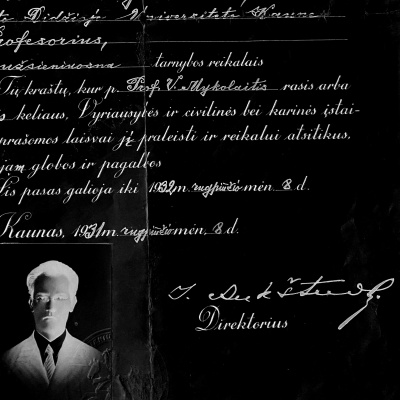 Didžiojo Universiteto Kaune
rofesorius,
užsieniuosna tarnybos reikalais
Tų kraštų, kur p. Prof. V. Mykolaitis rasis arba
s keliaus, Vyriausybės ir civilinės bei karinės įstai-
prašomos laisvai jį praleisti ir reikalui atsitikus,
jam globos ir pagalbos
Šis pasas galioja iki 1932 m. rugpiučio mėn. 8 d.
Kaunas, 1931 m. rugpiučio mėn. 8 d.
Direktorius